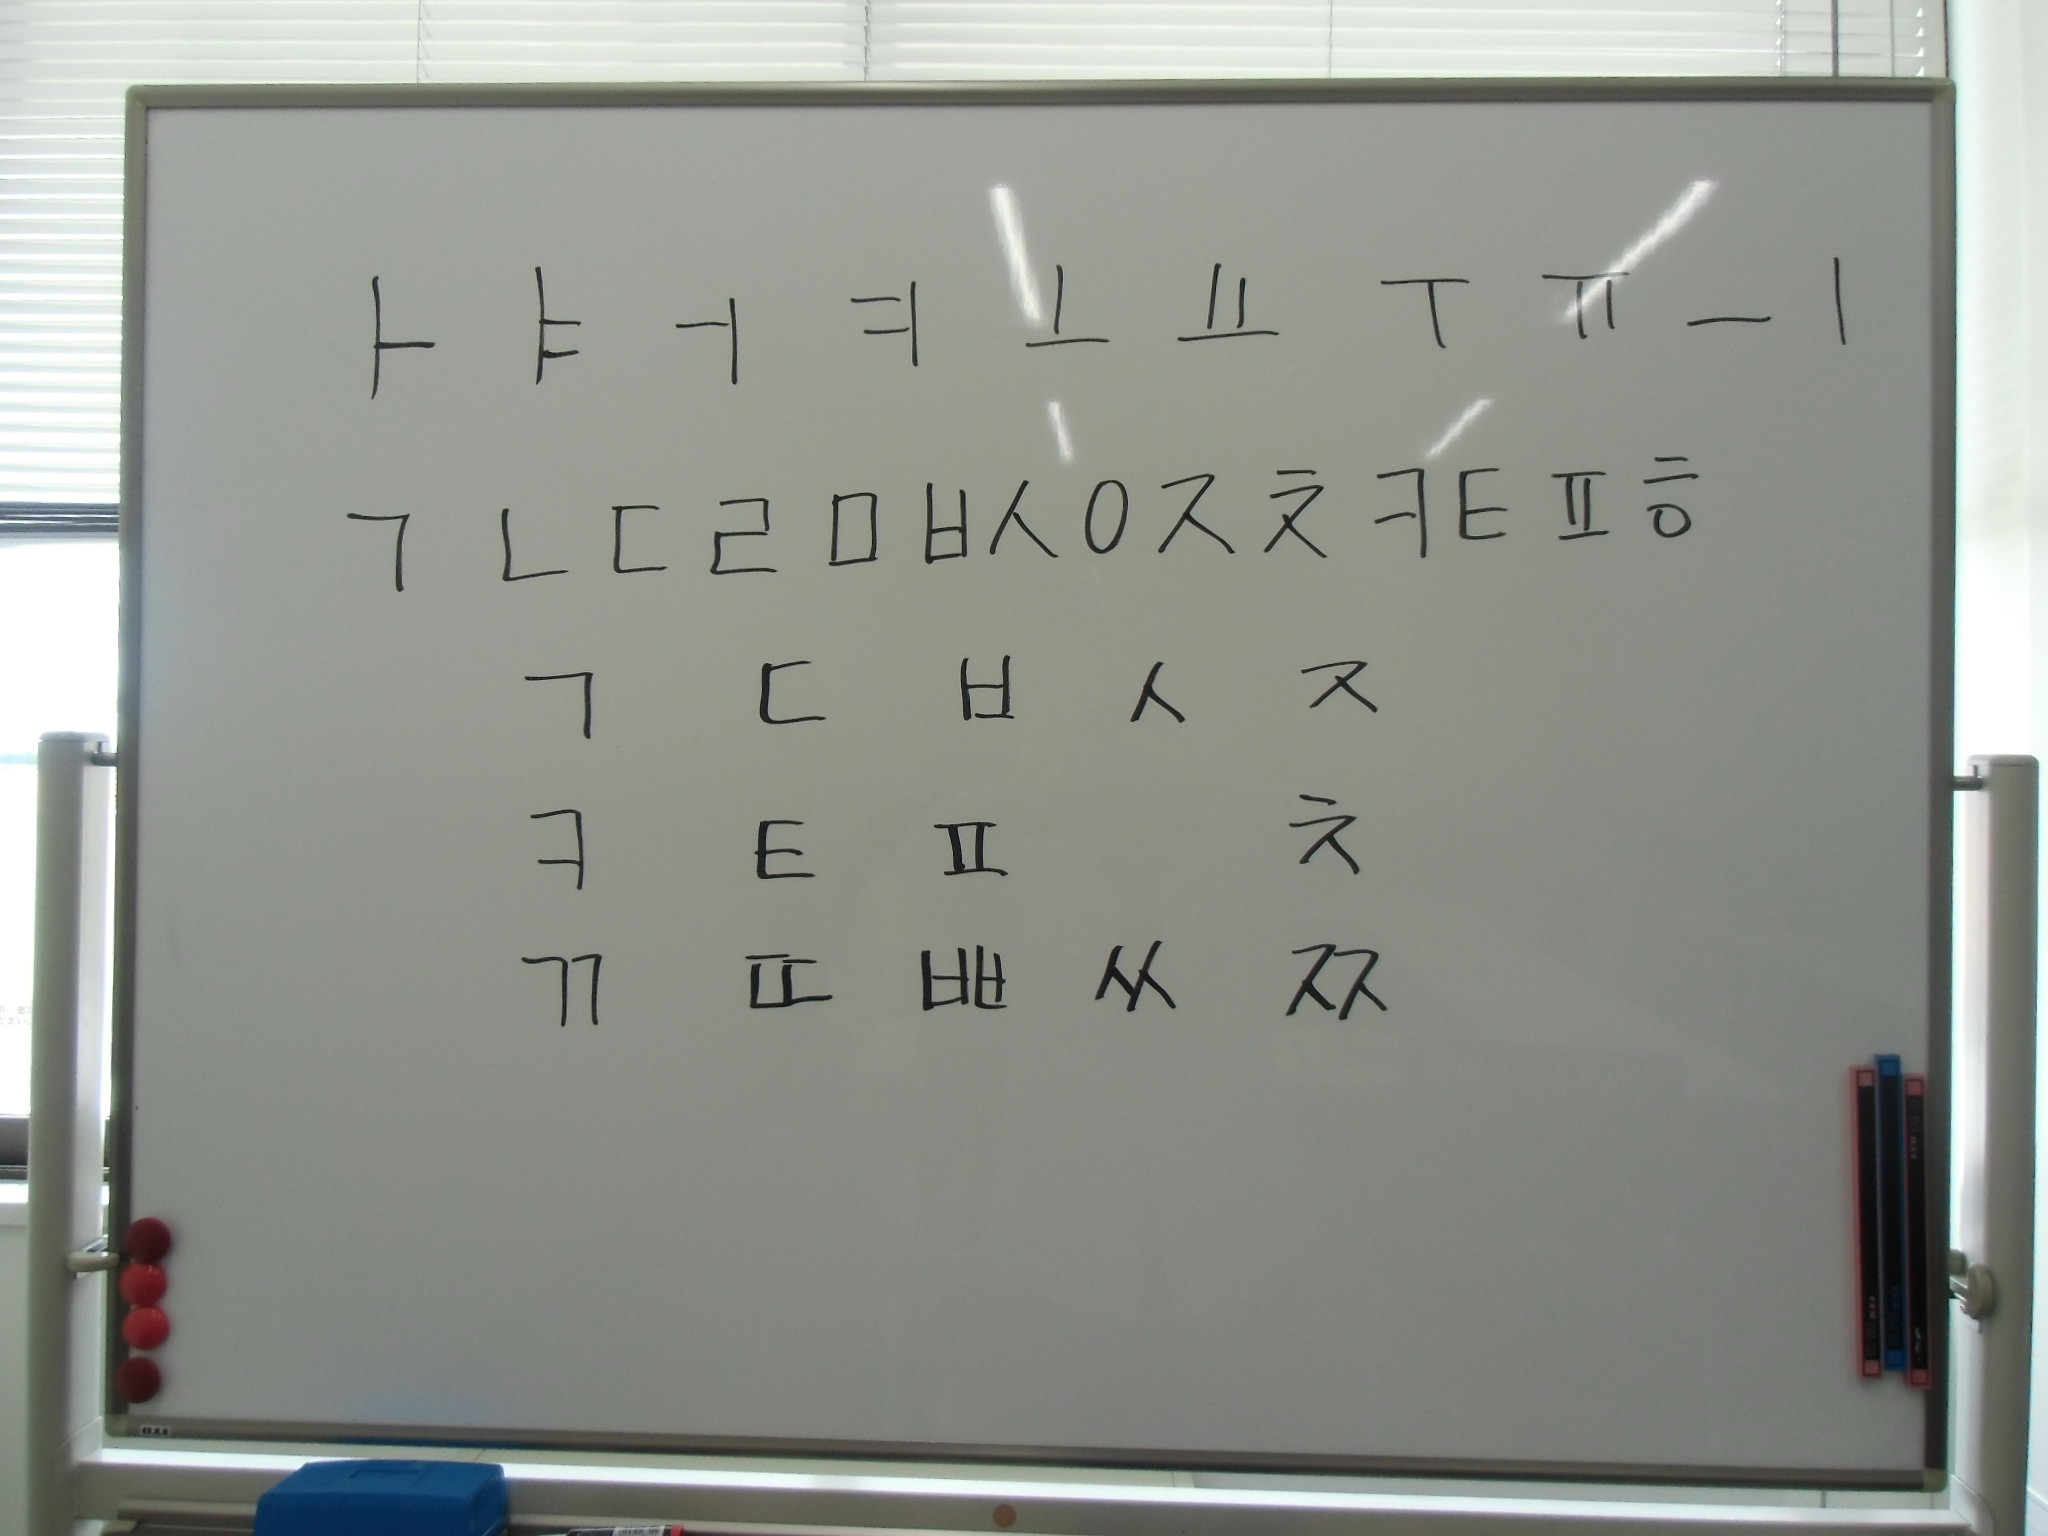 ㅏ ㅑ ㅓ ㅕ ㅗ ㅛ ㅜ ㅠ ㅡ ㅣ
ㄱ ㄴ ㄷ ㄹ ㅁ ㅂ ㅅ ㅇ ㅈ ㅊ ㅋ ㅌ ㅍ ㅎ
ㄱ ㄷ ㅂ ㅅ ㅈ
ㅋ ㅌ ㅍ ㅊ
ㄲ ㄸ ㅃ ㅆ ㅉ